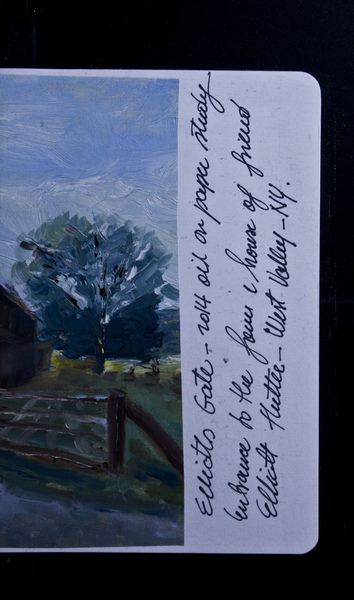 Elliotts Gate - 2014 oil on paper study
entrance to the farm & house of friend
Elliott - West Valley - NY.